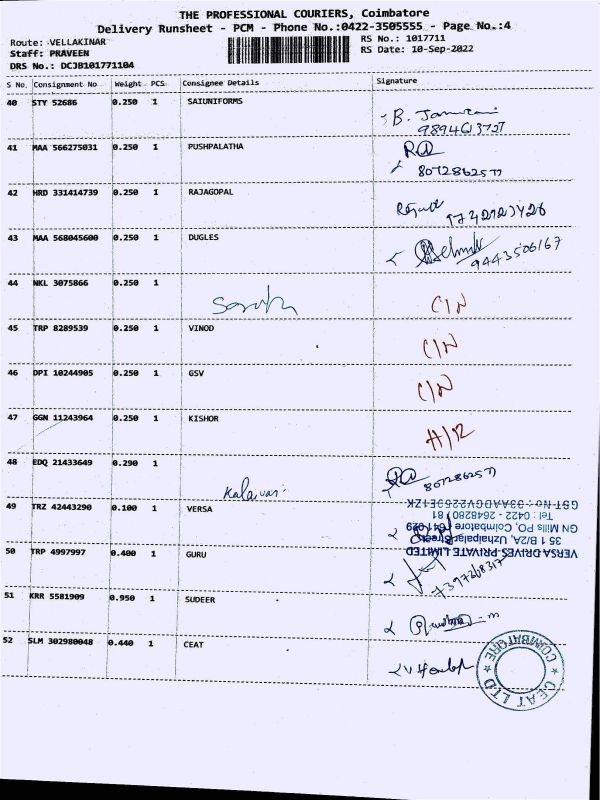 THE PROFESSIONAL COURIERS, Coimbatore
Delivery Runsheet - PCM - Phone No.:0422-3505555 - Page No.:4
Route: VELLAKINAR
RS No.: 1017711
Staff: PRAVEEN
RS Date: 10-Sep-2022
DRS No.: DCJB101771104
S No. Consignment No Weight PCS Consignee Details Signature
40 STY 52686 0.250 1 SAIUNIFORMS
B.
9894613727
41 MAA 566275031 0.250 1 PUSHPALATHA
8072862577
42 HRD 331414739 0.250 1 RAJAGOPAL
43 MAA 568045600 0.250 1 DUGLES
9443506167
44 NKL 3075866 0.250 1
C/N
45 TRP 8289539 0.250 1 VINOD
C/N
46 DPI 10244905 0.250 1 GSV
C/N
47 GGN 11243964 0.250 1 KISHOR
H/R
48 EDQ 21433649 0.290 1
8072862577
49 TRZ 42443290 0.100 1 VERSA
VERSA DRIVES PRIVATE LIMITED
35 1 B/2A, Uzhaipalar Street,
GN Mills PO, Coimbatore 641 029
Tel : 0422 - 2648280 / 81
50 TRP 4997997 0.400 1 GURU
51 KRR 5581909 0.950 1 SUDEER
52 SLM 302980048 0.440 1 CEAT
CEAT LTD
COIMBATORE